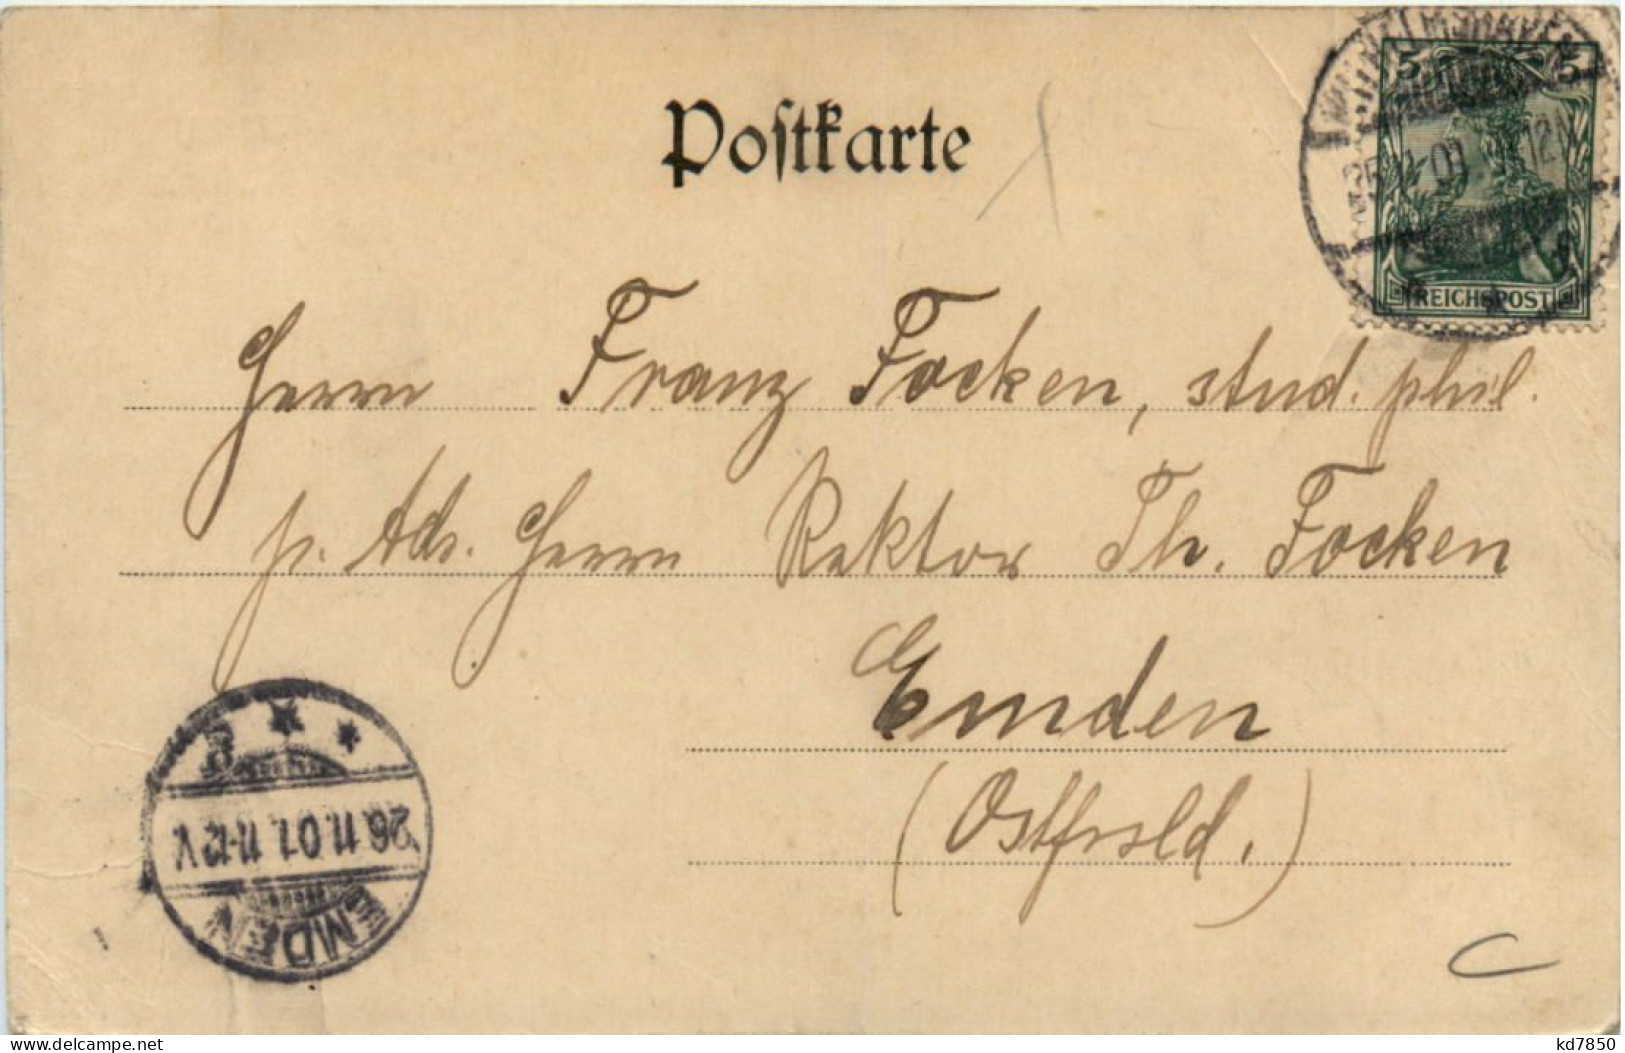 Postkarte
5 5
WILHELMSHAVEN
12N
REICHSPOST
Herrn Franz Focken, stud. phil.
p. Adr. Herrn Rektor Th. Focken
Emden
(Ostfrsld.)
26.11.01. 11-12 V.
EMDEN
C
kd7850